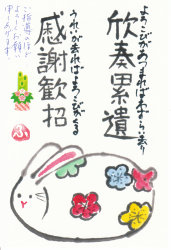 よろこびがあつまればわずらい去り
欣奏累遣
うれいが去ればよろこびがくる
感謝歓招
ご指導のほど
よろしくお願い
申しあげます
ふ